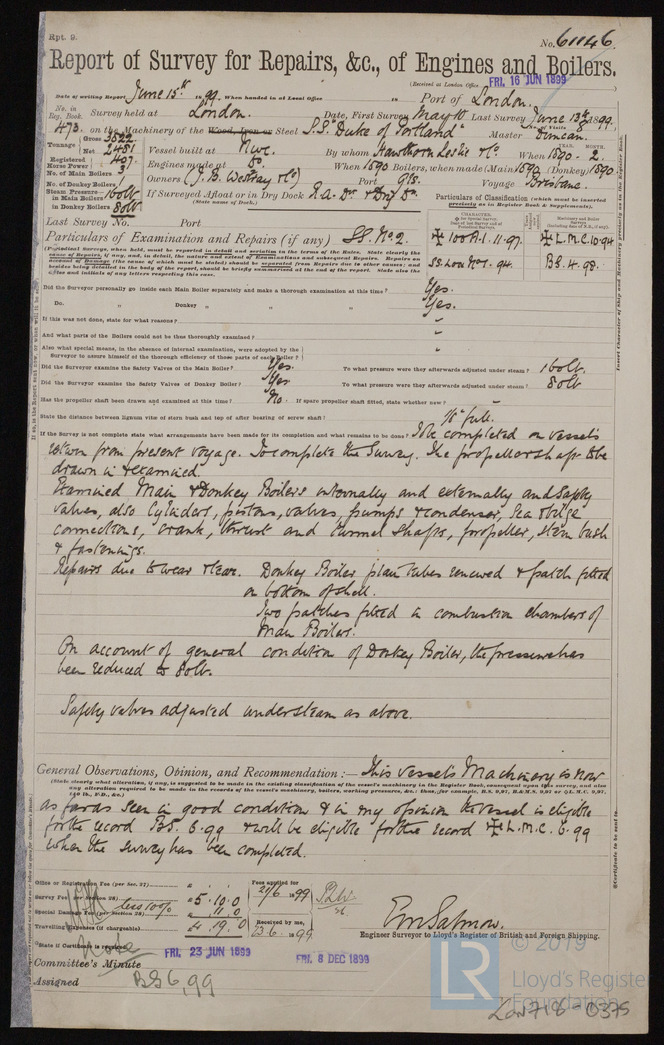 Rpt. 9.
No. 61146.
Report of Survey for Repairs, &c., of Engines and Boilers.
(Received at London Office FRI. 16 JUN 1899
Date of writing Report June 15th 99. When handed in at Local Office 18 Port of London.
No. in Reg. Book. Survey held at London. Date, First Survey May 10 Last Survey June 13th 1899.
473. on the Machinery of the Wood, Iron or Steel S.S. "Duke of Portland" Master Duncan.
Tonnage Gross 3522 Net 2451 Vessel built at Nwc. By whom Hawthorn Leslie & Co. When 1890 - 2.
Registered Horse Power 407 Engines made at Do. When 1890 Boilers, when made (Main) 1890 (Donkey) 1890
No. of Main Boilers 3 Owners (J. B. Westray & Co) Port Voyage Brisbane.
No. of Donkey Boilers 1
Steam Pressure in Main Boilers 160 lb If Surveyed Afloat or in Dry Dock R.A. Dk & Dry Do.
in Donkey Boilers 80 lb (State name of Dock.)
Particulars of Classification (which must be inserted precisely as in Register Book & Supplements).
Last Survey No. Port
Particulars of Examination and Repairs (if any) SS. No 2.
✠ 100 A.1. 11.97. ✠ L.M.C. 10.94
SS. Lon No 1. 94. B.S. 4. 98.
Did the Surveyor personally go inside each Main Boiler separately and make a thorough examination at this time? Yes.
Do. " Donkey " " " " Yes.
If this was not done, state for what reasons? "
And what parts of the Boilers could not be thus thoroughly examined? "
Also what special means, in the absence of internal examination, were adopted by the Surveyor to assure himself of the thorough efficiency of those parts of each Boiler? "
Did the Surveyor examine the Safety Valves of the Main Boiler? Yes. To what pressure were they afterwards adjusted under steam? 160 lb.
Did the Surveyor examine the Safety Valves of Donkey Boiler? Yes To what pressure were they afterwards adjusted under steam? 80 lb
Has the propeller shaft been drawn and examined at this time? No. If spare propeller shaft fitted, state whether new?
State the distance between lignum vitæ of stern bush and top of after bearing of screw shaft? 1/16" full.
If the Survey is not complete state what arrangements have been made for its completion and what remains to be done? To be completed on vessel's
return from present voyage. To complete the Survey. The propeller shaft to be
drawn in & examined.
Examined Main & Donkey Boilers internally and externally and Safety
valves, also Cylinders, pistons, valves, pumps & condenser, Sea & bilge
connections, crank, thrust and tunnel shafts, propeller, stern bush
& fastenings.
Repairs due to wear & tear. Donkey Boiler plain tubes renewed & patch fitted
on bottom of shell.
Two patches fitted in combustion chambers of
Main Boilers.
On account of general condition of Donkey Boiler, the pressure has
been reduced to 80 lb.
Safety valves adjusted under steam as above.
General Observations, Opinion, and Recommendation:— This Vessel's Machinery is now
as far as seen in good condition & in my opinion the vessel is eligible
for the record B.S. 6.99 & will be eligible for the record ✠ L.M.C. 6.99
when the survey has been completed.
Office or Registration Fee (per Sec. 27)
Survey Fee (per Section 28) less 10% £5.10.0
Special Damage Fee (per Section 28) 11.0
Travelling Expenses (if chargeable) £4.19.0
Fees applied for 21/6 1899
Received by me, 23.6. 1899
Engineer Surveyor to Lloyd's Register of British and Foreign Shipping.
State if Certificate is required
Committee's Minute FRI. 23 JUN 1899 FRI. 8 DEC 1899
Assigned BS 6,99
© 2019
LR Lloyd's Register Foundation
Lon718-0375